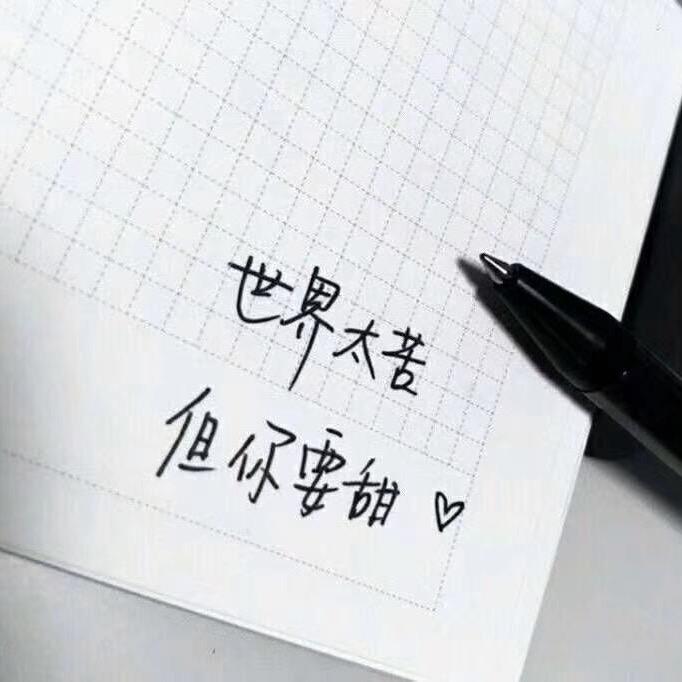 世界太苦
但你要甜♡